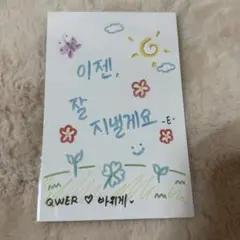 이젠,
잘
지낼게요 -E-
QWER ♡ 바위게